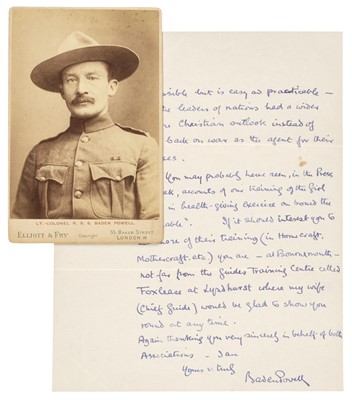 LT.-COLONEL R. S. S. BADEN POWELL.
ELLIOTT & FRY
Copyright
55, BAKER STREET
LONDON. W
ssible but is easy as practicable —
the leaders of nations had a wider
Christian outlook instead of
back on war as the agent for their
ses.
You may probably have seen, in the Press
accounts of our training of the Girl
in health-giving exercise on board the
able". If it should interest you to
more of their training (in Homecraft,
Mothercraft, etc) you are — at Bournemouth —
not far from the Guides Training Centre called
Foxlease at Lyndhurst where my wife
(Chief Guide) would be glad to show you
round at any time.
Again thanking you very sincerely in behalf of both
Associations — I am
Yours v. truly
Baden Powell